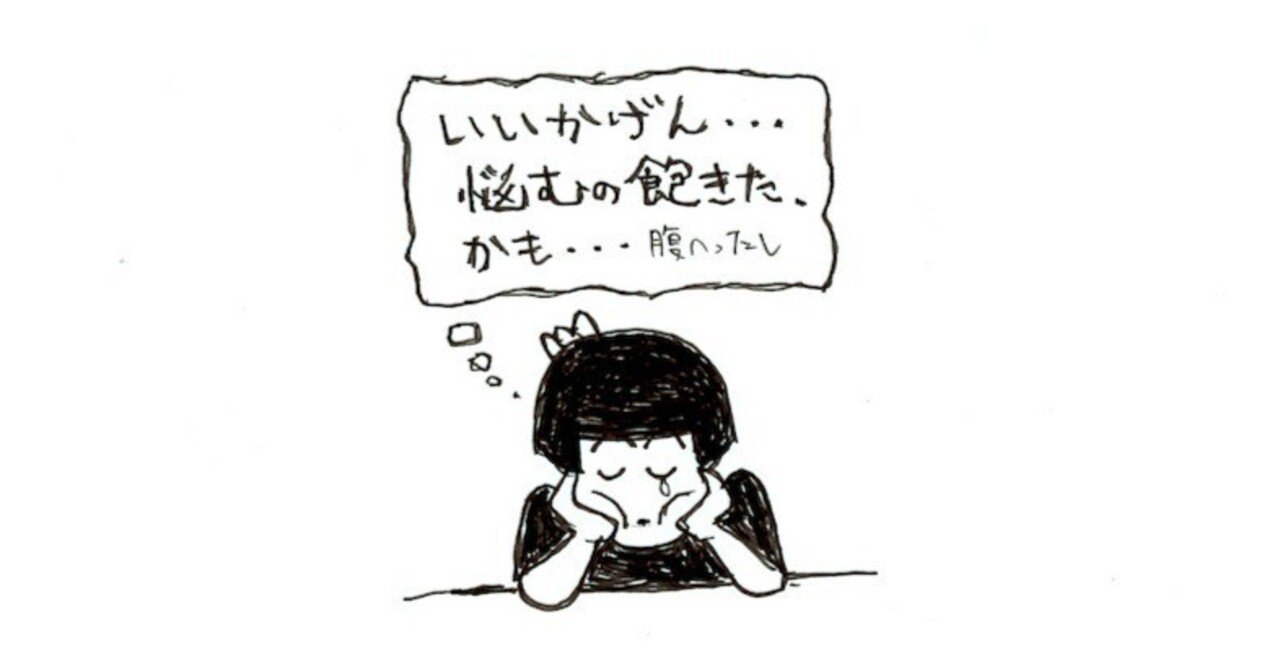 いいかげん・・・
悩むの飽きた、
かも・・・腹へったし